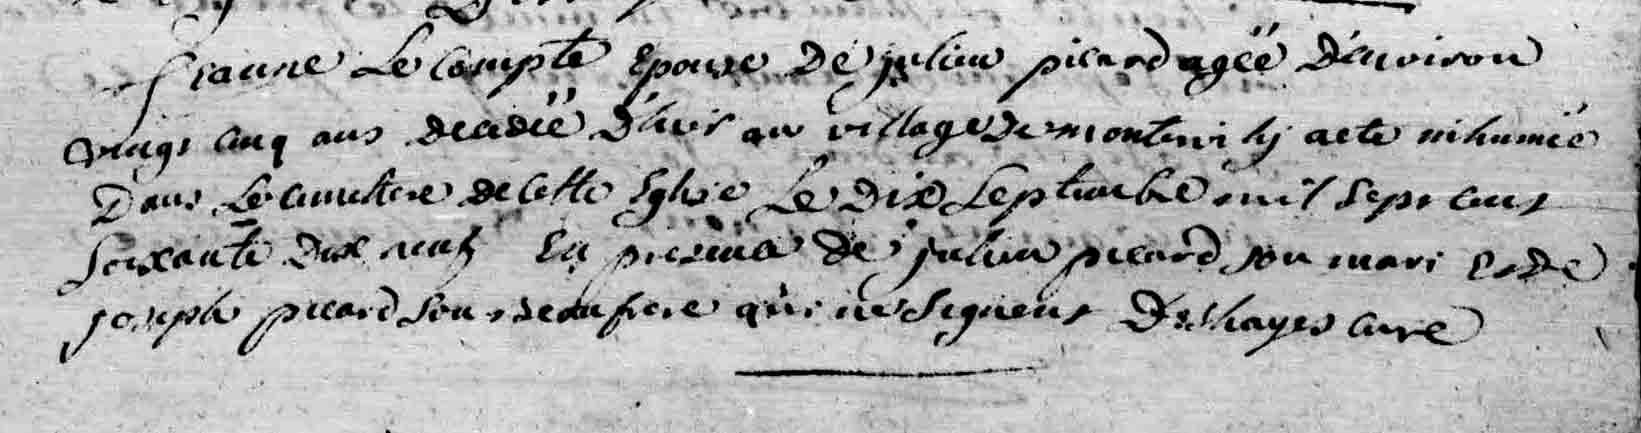 jeanne Le Compte Epouse De julien picard agéé D'environ
vingt cinq ans decedéé D'hier au village De montewilly aete inhumée
Dans Le cimetiere de cette Eglise Le Dix Septembre mil sept cens
Soixante Dix neuf En presence de julien picard son mari et de
joseph picard son beau frere qui ne signent Deshayes curé